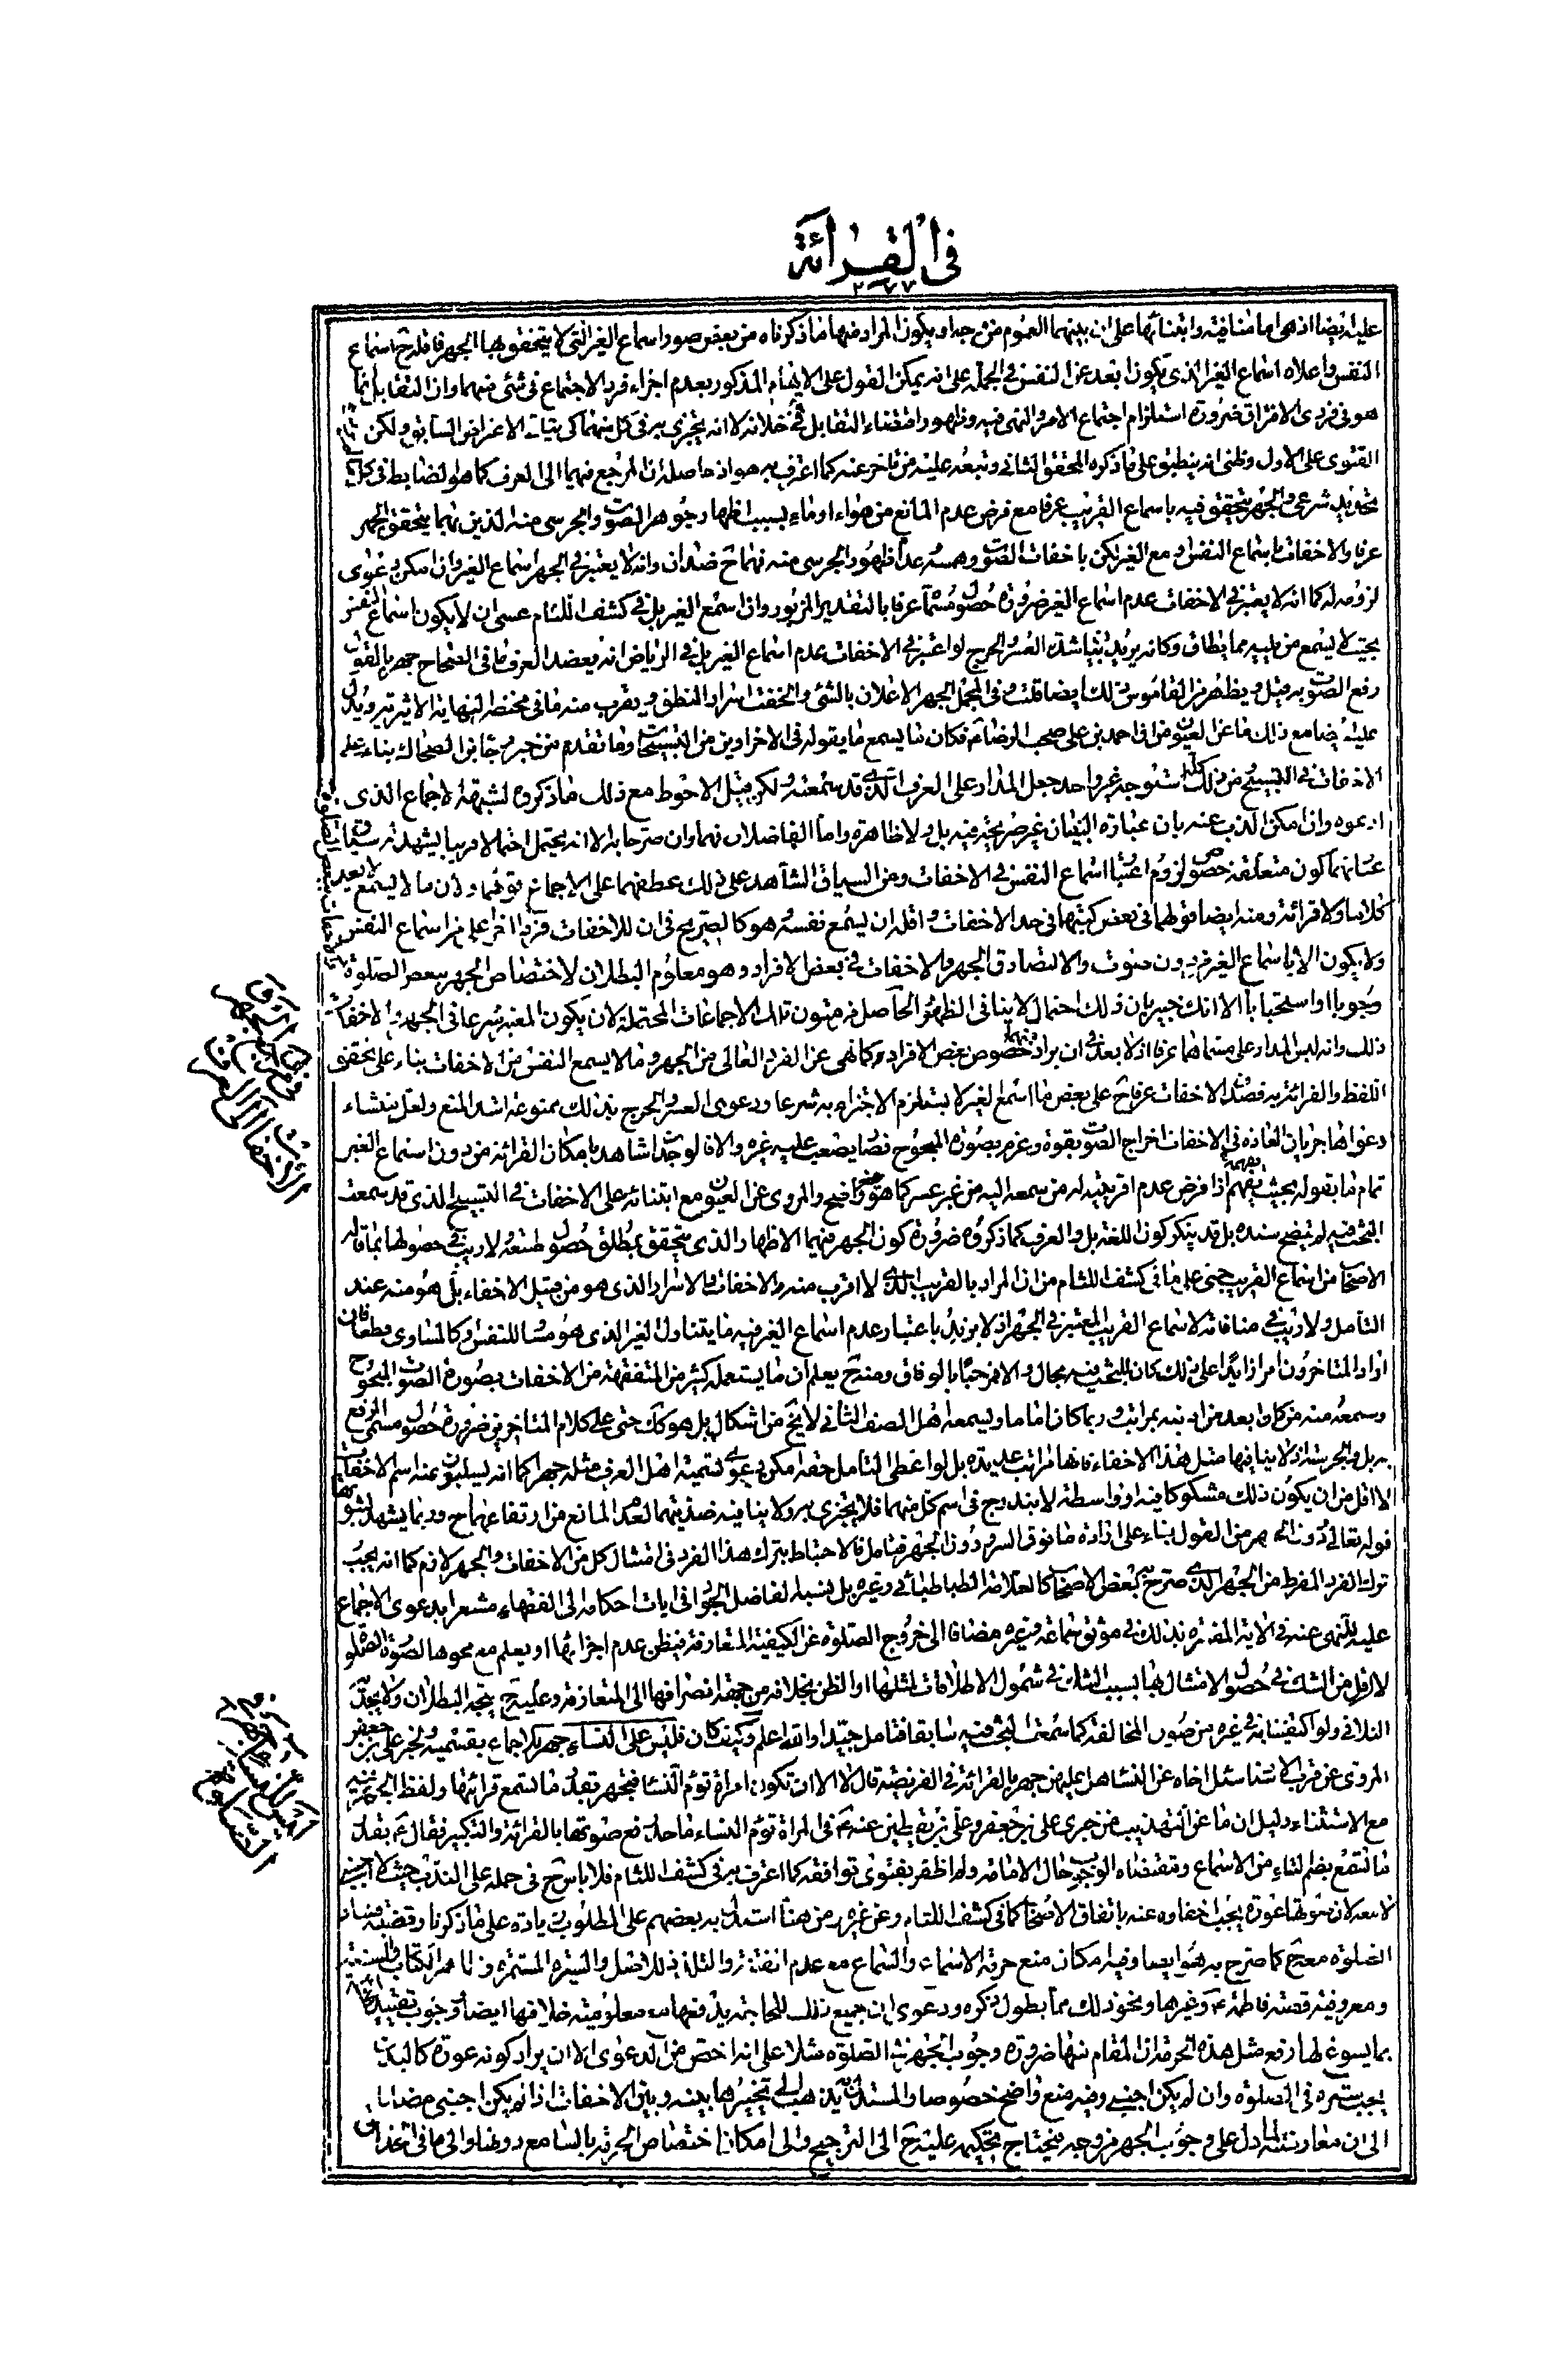 في القرائة
٢٧٧
عليه ايضا اذ هما منافية وابتنائها على ان بينهما العموم من وجه او يكون المراد منها ما ذكرناه من بعض صور اسماع الغير التي لا يتحقق بها الجهر فاقله ح اسماع
النفس واعلاه اسماع الغير الذي يكون ابعد عن النفس في الجملة على انه يمكن القول على الابهام المذكور بعدم اجزاء فرد الاجتماع في شئ منهما وان التقابل انما
هو في فردي الافتراق ضرورة استلزام اجتماع الامر والنهي فيه وظهور اقتضاء التقابل في خلافه لا انه يجتزى به في كل منهما كي يتجه الاعتراض السابق ولكن
الفتوى على الاول وظني انه ينطبق على ما ذكره المحقق الثاني وتبعه عليه من تاخر عنه كما اعترف به هو اذ حاصله ان المرجع فيهما الى العرف كما هو الضابط في كل
تحديد شرعي والجهر يتحقق فيه باسماع القريب عرفا مع فرض عدم المانع من هواء او ماء بسبب اظهار جوهر الصوت والجرسي منه الذين بهما يتحقق الجهر
عرفا والاخفات باسماع النفس او مع الغير لكن باخفات الصوت وهمسه وعدم ظهور الجرسي منه فهما ح ضدان وانه لا يعتبر في الجهر اسماع الغير وان امكن دعوى
لزومه له كما انه لا يعتبر في الاخفات عدم اسماع الغير ضرورة حصول مسماه عرفا بالتقدير المزبور وان اسمع الغير بل في كشف اللثام عسى ان لا يكون اسماع النفس
بحيث لا يسمع من يليه مما يطاق وكانه يريد بيان شدة العسر والحرج لو اعتبر في الاخفات عدم اسماع الغير بل في الرياض انه يعضد العرف ما في الصحاح جهر بالقول
رفع الصوت به قيل ويظهر من القاموس ذلك ايضا قلت وفي المجمل الجهر الاعلان بالشئ والخفت اسرار النطق ويقرب منه ما في مختصر النهاية الاثيرية ويدل
عليه ايضا مع ذلك ما عن العيون من ان احمد بن علي صحب الرضا ع فكان لما يسمع ما يقوله في الاخراوين من التسبيحات وما تقدم من خبر رجاء بن الضحاك بناء على
الاخفات في التسبيح من ذلك كله استوجه غير واحد جعل المدار على العرف الذي قد سمعته ولكن قيل الاحوط مع ذلك ما ذكروه لشبهة الاجماع الذي
ادعوه وان امكن الذب عنه بان عبارة التبيان غير صريحة فيه بل ولا ظاهرة واما الفاضلان فهما وان صرحا به الا انه يحتمل احتمالا قريبا يشهد له سياق
عبارتهما كون متعلقه خصوص لزوم اعتبار اسماع النفس في الاخفات ومن السياق الشاهد على ذلك عطفهما على الاجماع قولهما ولان ما لا يسمع لا يعد
كلاما ولا قرائة ومنه ايضا قولهما في بعض كتبهما في حد الاخفات واقله ان يسمع نفسه وهو كالصريح في ان للاخفات فردا اخر اعلى من اسماع النفس
ولا يكون الا باسماع الغير بدون صوت والا لتصادق الجهر والاخفات في بعض الافراد وهو معلوم البطلان لاختصاص الجهر ببعض الصلوة
وجوبا او استحبابا الا انك خبير بان ذلك احتمال لا ينافي الظهور الحاصل من متون تلك الاجماعات المحتملة لان يكون المعتبر شرعا في الجهر والاخفات
ذلك وانه ليس المدار على مسماهما عرفا اذ لا بعد في ان يراد منهما خصوص بعض الافراد كما نهى عن الفرد العالي من الجهر وما لا يسمع النفس من الاخفات بناء على تحقق
اللفظ والقرائة به فصدق الاخفات عرفا ح على بعض ما اسمع الغير لا يستلزم الاجتزاء به شرعا ودعوى العسر والحرج بذلك ممنوعة اشد المنع ولعل منشاء
دعواها جريان العادة في الاخفات اخراج الصوت بقوة وعزم بصورة المبحوح فصار يصعب عليه غيره والا فالوجدان شاهد بامكان القرائة من دون اسماع الغير
تمام ما يقوله بحيث يفهمه اذا فرض عدم اقربيته له من سمعه اليه من غير عسر كما هو واضح والمروي عن العيون مع ابتنائه على الاخفات في التسبيح الذي قد سمعت
البحث فيه لم يتضح سنده بل قد ينكر كون اللغة بل والعرف كما ذكروه ضرورة كون الجهر فيهما الاظهار الذي يتحقق بمطلق حصول طبيعة لا ريب في حصولها بما قاله
الاصحاب من اسماع القريب حتى على ما في كشف اللثام من ان المراد بالقريب الذي لا اقرب منه والاخفات والاسرار الذي هو من قبيل الاخفاء بل هو منه عند
التامل ولا ريب في منافاته لاسماع القريب المعتبر في الجهر اذ لا نريد باعتبار عدم اسماع الغير فيه ما يتناول الغير الذي هو مساو للنفس او كالمساوي قطعا فان
اراد المتاخرون امرا زايدا على ذلك كان للبحث فيه مجال والا فمرحبا بالوفاق ومنه ح يعلم ان ما يستعمله كثير من المتفقهة من الاخفات بصورة الصوت المبحوح
وسمعه منه من كان ابعد من اذنيه بمراتب وربما كان اماما ويسمعه اهل الصف الثاني لا يخ من اشكال بل هو كك حتى على كلام المتاخرين ضرورة حصول مسمى الرفع
به بل والجرسية اذ لا ينافيها مثل هذا الاخفاء فانها مراتب عديدة بل لو اعطى التامل حقه امكن دعوى تسمية اهل العرف مثله جهرا كما انه يسلبون عنه اسم الاخفات
لا اقل من ان يكون ذلك مشكوكا فيه او واسطة لا يندرج في اسم كل منهما فلا يجتزى به ولا ينافيه ضديتهما لعدم المانع من ارتفاعهما ح وربما يشهد لثبوتها
قوله تعالى دون الجهر من القول بناء على ارادة ما فوق السر ودون الجهر فتامل فالاحتياط بترك هذا الفرد في امتثال كل من الاخفات والجهر لازم كما انه يجب
ترك الفرد المفرط من الجهر الذي صرح به بعض الاصحاب كالعلامة الطباطبائي وغيره بل نسبه الفاضل الجواد في ايات احكامه الى الفقهاء مشعرا بدعوى الاجماع
عليه للنهي عنه في الاية المفسرة بذلك في موثق سماعة وغيره مضافا الى خروج الصلوة عن الكيفية المتعارفة فيظن عدم اجزائها او يعلم مع محوها لصورة الصلوة
لا اقل من الشك في حصول الامتثال بها بسبب الشك في شمول الاطلاقات لمثلها او الظن بخلافه من جهة انصرافها الى المتعارفة وعليه ح يتجه البطلان ولا يجدي
التلافي ولو اكتفينا به في غيره من صور المخالفة كما سمعت البحث فيه سابقا فتامل جيدا والله اعلم وكيف كان فليس على النساء جهر بالاجماع بقسميه ولخبر علي بن جعفر
المروي عن قرب الاسناد سئل اخاه عن النساء هل عليهن جهر بالقرائة في الفريضة قال لا الا ان تكون امراة تؤم النساء فتجهر بقدر ما تسمع قرائتها ولفظ الجهر فيه
مع الاستثناء دليل ان ما عن التهذيب من خبري علي بن جعفر وعلي بن يقطين عنه ع في المراة تؤم النساء ما حد رفع صوتها بالقرائة والتكبير فقال ع بقدر
ما تسمع بضم التاء من الاسماع ومقتضاه الوجوب حال الامامة ولم اظفر بفتوى توافقه كما اعترف به في كشف اللثام فلا باس ح في حمله على الندب حيث لا اجنبي
لا معه لان صوتها عورة يجب اخفاؤه عنه باتفاق الاصحاب كما في كشف اللثام وعن غيره ومن هنا استدل به بعضهم على المطلوب بزيادة على ما ذكرنا وقضيته فساد
الصلوة معه ح كما صرح به هو ايضا وفيه امكان منع حرمة الاسماع والسماع مع عدم الفتنة والتلذذ للاصل والسيرة المستمرة وظاهر الكتاب والسنة
ومعروفية قصة فاطمة ع وغيرها ونحو ذلك مما يطول ذكره ودعوى ان جميع ذلك للحاجة يدفعها معلومية خلافها ايضا ووجوب تقييدها
بما يسوغ لها رفع مثل هذه الحرمة ان المقام منها ضرورة وجوب الجهر في الصلوة مثلا على انه اخص من الدعوى الا ان يراد كونه عورة كالبدن
يجب ستره في الصلوة وان لم يكن اجنبي وفيه منع واضح خصوصا والمستدل به يذهب الى تخييرها بينه وبين الاخفات اذا لم يكن اجنبي مضافا
الى ان معارضته لما دل على وجوب الجهر من وجه فيحتاج تحكيمه عليه ح الى الترجيح والى امكان اختصاص الحرمة بالسامع دونها والى ما في اغتذاق